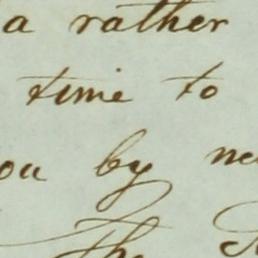 a rather
time to
ou by ne
The